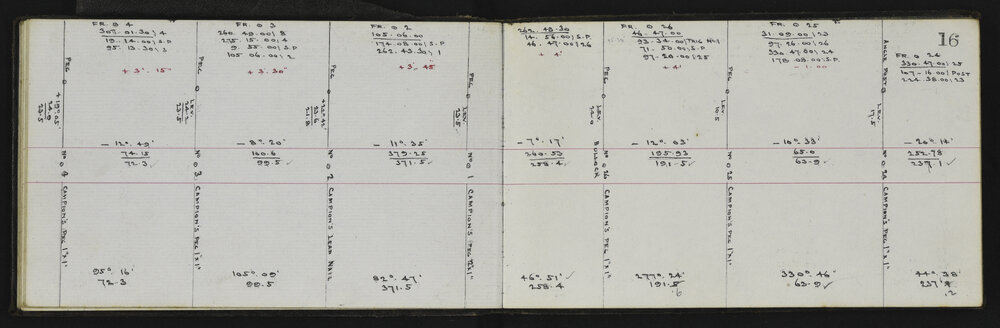 16
FR. O 4
307. 01. 30 | 4
19. 14. 00 | S.P
95. 13. 30 | 3
+ 3'. 15"
PEG O
+ 19°. 05'
24.9
23.5
- 12°. 49'
74.15
72.3 ✓
No O 4 CAMPION'S PEG 1"X1"
95°. 16'
72.3
FR. O 3
260. 49. 00 | 8
275. 15. 00 | 4
9. 55. 00 | S.P
105. 06. 00 | 2
+ 3'. 30"
PEG O
LEV.
24.2
23.5
- 8°. 20'
100.6
99.5 ✓
No O 3 CAMPION'S PEG 1"X1"
105°. 09'
99.5
FR. O 2
105. 06. 00
174. 08. 00 | S.P
262. 43. 30 | 1
+ 3'. 45"
PEG O
23.6
21.8
- 11°. 35'
379.25
371.5 ✓
No O 2 CAMPION'S LEAD NAIL
82°. 47'
371.5
PEG O
LEV.
23.5
No O 1 CAMPION'S PEG
262. 43. 30
14. 56. 00 | S.P
46. 47. 00 | 26
+ 4'
- 7°. 17'
260.53
258.4 ✓
46°. 51' ✓
258.4
FR. O 26
46. 47. 00
93. 34. 00 | TRIG No 1
71. 50. 00 | S.P
97. 28. 00 | 25
+ 4'
PEG O
LEV.
22.0
BULLOCK
No O 26 CAMPION'S PEG 1"X1"
- 12°. 03'
195.93
191.5 ✓
277°. 24'
191.5
6
PEG O
LEV.
10.5
No O 25 CAMPION'S PEG 1"X1"
FR. O 25
31. 09. 00 | 23
97. 26. 00 | 26
330. 47. 00 | 24
178. 08. 00 | S.P
- 1. 00
- 10°. 33'
65.0
63.9 ✓
330°. 46'
63.9 ✓
ANGLE POST O
LEV.
17.5
No O 24 CAMPION'S PEG 1"X1"
FR. O 24
330. 47. 00 | 25
107. 16. 00 | POST
224. 38. 00 | 23
- 20°. 14'
252.78
237.1 ✓
44°. 38'
237
.2